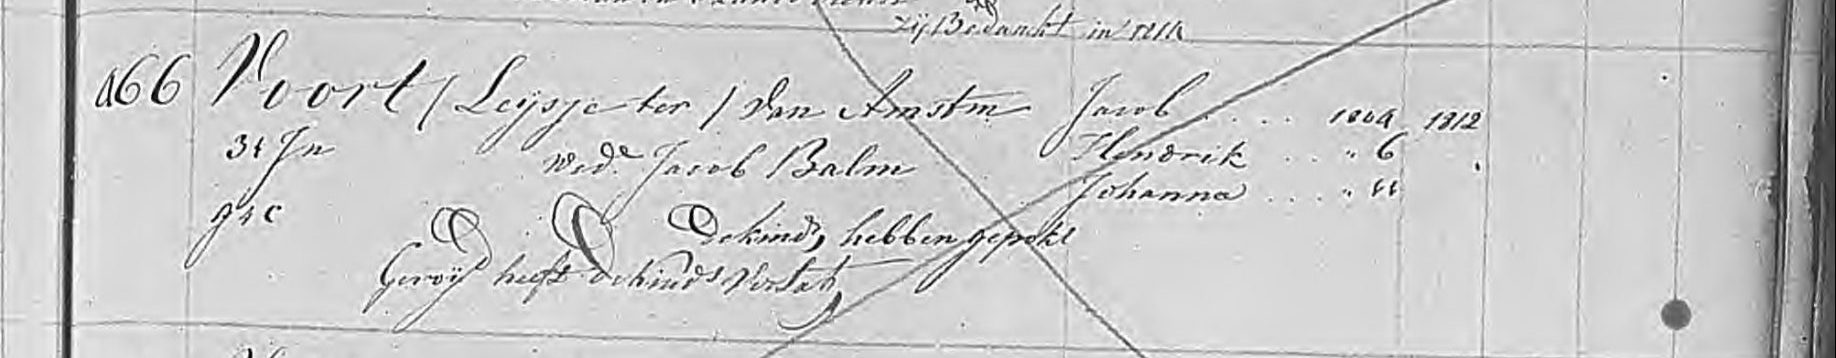 zij Bedankt in
a66 Voort / Leijsje ter / van Amstm Jacob .... 1809 1812
31 Jn wede Jacob Balm Hendrik .. " 6
g4c Johanna .... " 11
de kindn hebben gepokt
heeft de kinds verlatn